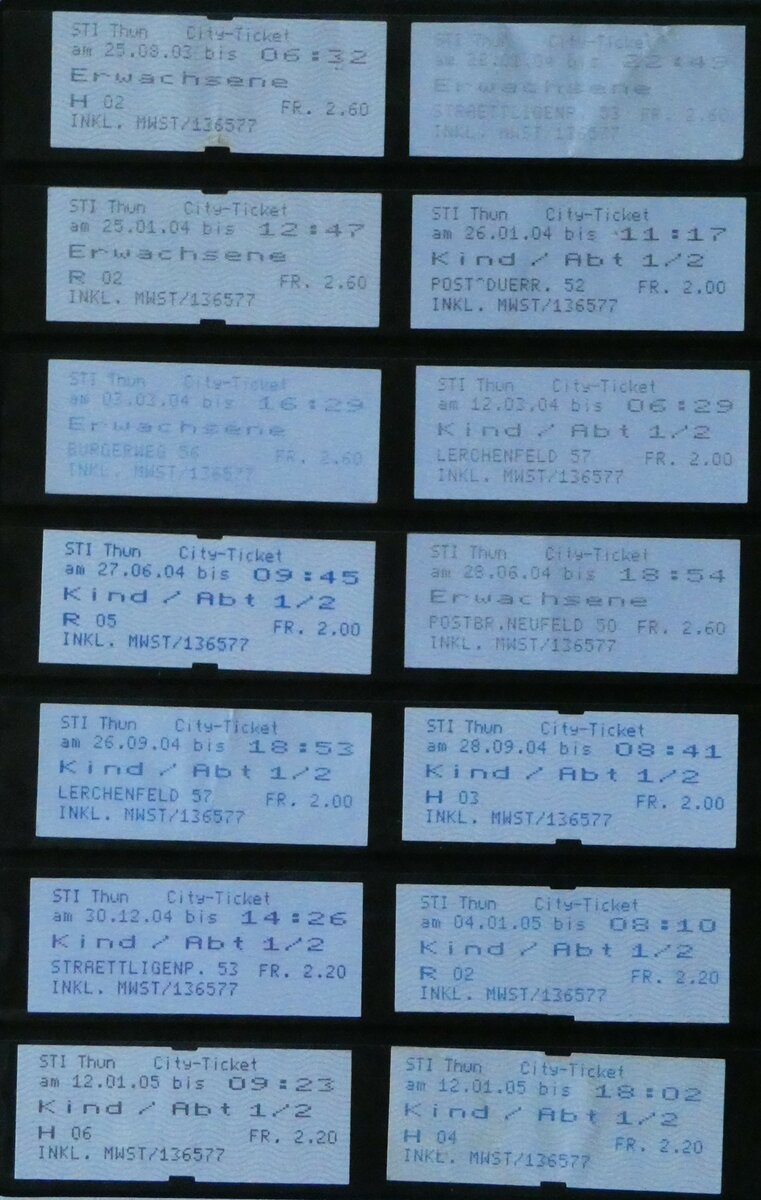 STI Thun City-Ticket
am 25.09.03 bis 06:32
Erwachsene
H 02 FR. 2.60
INKL. MWST/136577
STI Thun City-Ticket
am 04 bis 22:43
Erwachsene
STRAETTLIGENP. 53 FR. 2.60
INKL. MWST/136577
STI Thun City-Ticket
am 25.01.04 bis 12:47
Erwachsene
R 02 FR. 2.60
INKL. MWST/136577
STI Thun City-Ticket
am 26.01.04 bis 11:17
Kind / Abt 1/2
POST^DUERR. 52 FR. 2.00
INKL. MWST/136577
STI Thun City-Ticket
am 03.03.04 bis 16:29
Erwachsene
BURGERWEG 56 FR. 2.60
INKL. MWST/136577
STI Thun City-Ticket
am 12.03.04 bis 06:29
Kind / Abt 1/2
LERCHENFELD 57 FR. 2.00
INKL. MWST/136577
STI Thun City-Ticket
am 27.06.04 bis 09:45
Kind / Abt 1/2
R 05 FR. 2.00
INKL. MWST/136577
STI Thun City-Ticket
am 28.06.04 bis 18:54
Erwachsene
POSTBR.NEUFELD 50 FR. 2.60
INKL. MWST/136577
STI Thun City-Ticket
am 26.09.04 bis 18:53
Kind / Abt 1/2
LERCHENFELD 57 FR. 2.00
INKL. MWST/136577
STI Thun City-Ticket
am 28.09.04 bis 08:41
Kind / Abt 1/2
H 03 FR. 2.00
INKL. MWST/136577
STI Thun City-Ticket
am 30.12.04 bis 14:26
Kind / Abt 1/2
STRAETTLIGENP. 53 FR. 2.20
INKL. MWST/136577
STI Thun City-Ticket
am 04.01.05 bis 08:10
Kind / Abt 1/2
R 02 FR. 2.20
INKL. MWST/136577
STI Thun City-Ticket
am 12.01.05 bis 09:23
Kind / Abt 1/2
H 06 FR. 2.20
INKL. MWST/136577
STI Thun City-Ticket
am 12.01.05 bis 18:02
Kind / Abt 1/2
H 04 FR. 2.20
INKL. MWST/136577